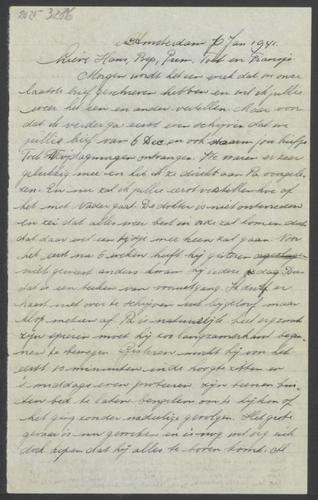 3286
Amsterdam 8 Jan 1941.
Lieve Hans, Bep, Pum, Tott en Fransje
Morgen wordt het een week dat we onze
laatste brief geschreven hebben en wil ik jullie
weer het een en ander vertellen. Maar voor
dat ik verder ga eerst even schrijven dat we
jullie brief van 6 Dec en ook jou briefje
Tott ontvangen. We waren er zeer
gelukkig mee en heb ik ze direct aan Pa voorgele-
zen. En nu zal ik jullie eerst vertellen hoe of
het met Vader gaat. De dokter is niet ontevreden
en zei dat alles weer best in orde zal komen
dat daar wel een tijdje mee heen zal gaan. Voor
het eerst na 6 weken heeft hij gisteren
niet geweest anders kwam hij iedere dag. Dus
dat is een teeken van vooruitgang. Ik durf er
haast niet over te schrijven
klop meteen af. Pa is natuurlijk heel erg zwak
zijn spieren moet hij zoo langzamerhand begin-
nen te bewegen. Gisteren mocht hij voor het
eerst 10 minuten in de hoogte zitten en
's middags even probeeren zijn beenen bui-
ten bed te laten bengelen om te kijken of
het ging zonder nadeelige gevolgen. Het groote
gevaar is nu geweken en is nog wel erg ziek
doch hopen dat hij alles te boven komt. Ik